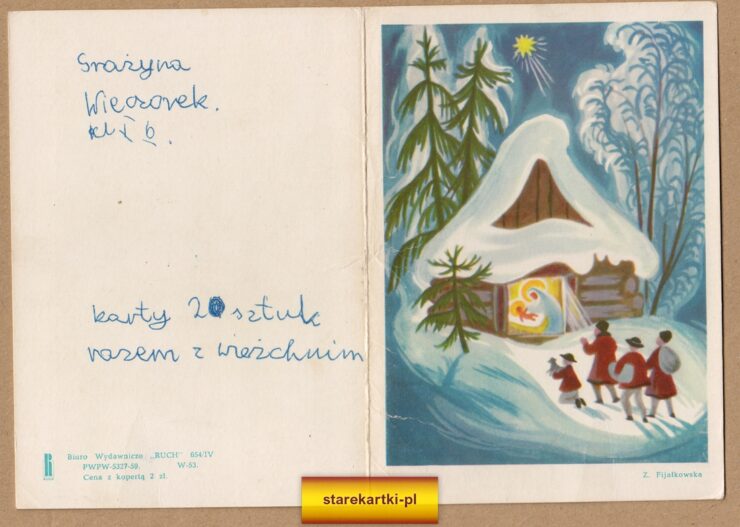 Grażyna
Wieczorek.
kl I b.
karty 20 sztuk
razem z wieżchnim
Biuro Wydawnicze „RUCH" 654/IV
PWPW-5327-59. W-53.
Cena z kopertą 2 zł.
RUCH
Z. Fijałkowska
starekartki-pl